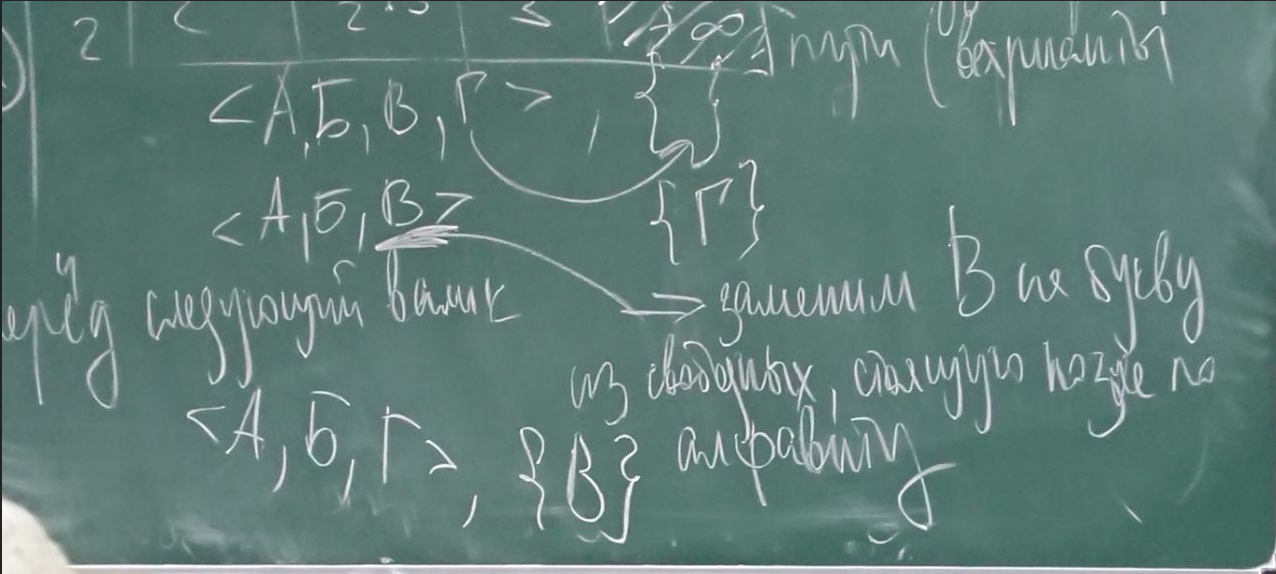 2
пути (варианты
<А, Б, В, Г>, { }
<А, Б, В> {Г}
следующий
заменим В на букву
из свободных, стоящую позже по
алфавиту
<А, Б, Г>, {В}